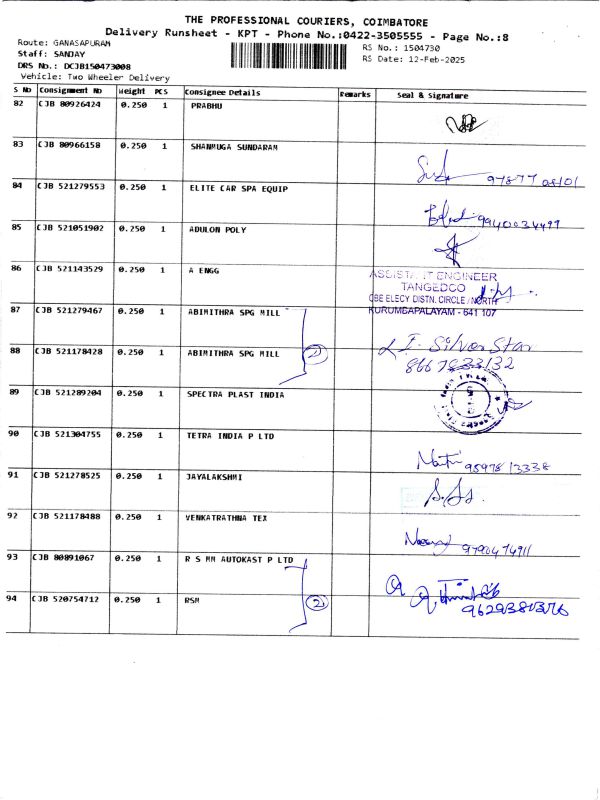 THE PROFESSIONAL COURIERS, COIMBATORE
Delivery Runsheet - KPT - Phone No.:0422-3505555 - Page No.:8
Route: GANASAPURAM
RS No.: 1504730
Staff: SANJAY
RS Date: 12-Feb-2025
DRS No.: DCJB150473008
Vehicle: Two Wheeler Delivery
S No Consignment No Weight PCS Consignee Details Remarks Seal & Signature
82 CJB 80926424 0.250 1 PRABHU
83 CJB 80966158 0.250 1 SHANMUGA SUNDARAM
84 CJB 521279553 0.250 1 ELITE CAR SPA EQUIP
85 CJB 521051902 0.250 1 ADULON POLY
99400 34499
86 CJB 521143529 0.250 1 A ENGG
ASSISTANT ENGINEER
TANGEDCO
CBE ELECY DISTN. CIRCLE / NORTH
KURUMBAPALAYAM - 641 107
87 CJB 521279467 0.250 1 ABIMITHRA SPG MILL
88 CJB 521178428 0.250 1 ABIMITHRA SPG MILL 2
Silver Star
89 CJB 521289204 0.250 1 SPECTRA PLAST INDIA
90 CJB 521304755 0.250 1 TETRA INDIA P LTD
95978 13338
91 CJB 521278525 0.250 1 JAYALAKSHMI
92 CJB 521178488 0.250 1 VENKATRATHNA TEX
9790474911
93 CJB 80891067 0.250 1 R S MM AUTOKAST P LTD
94 CJB 520754712 0.250 1 RSM 2